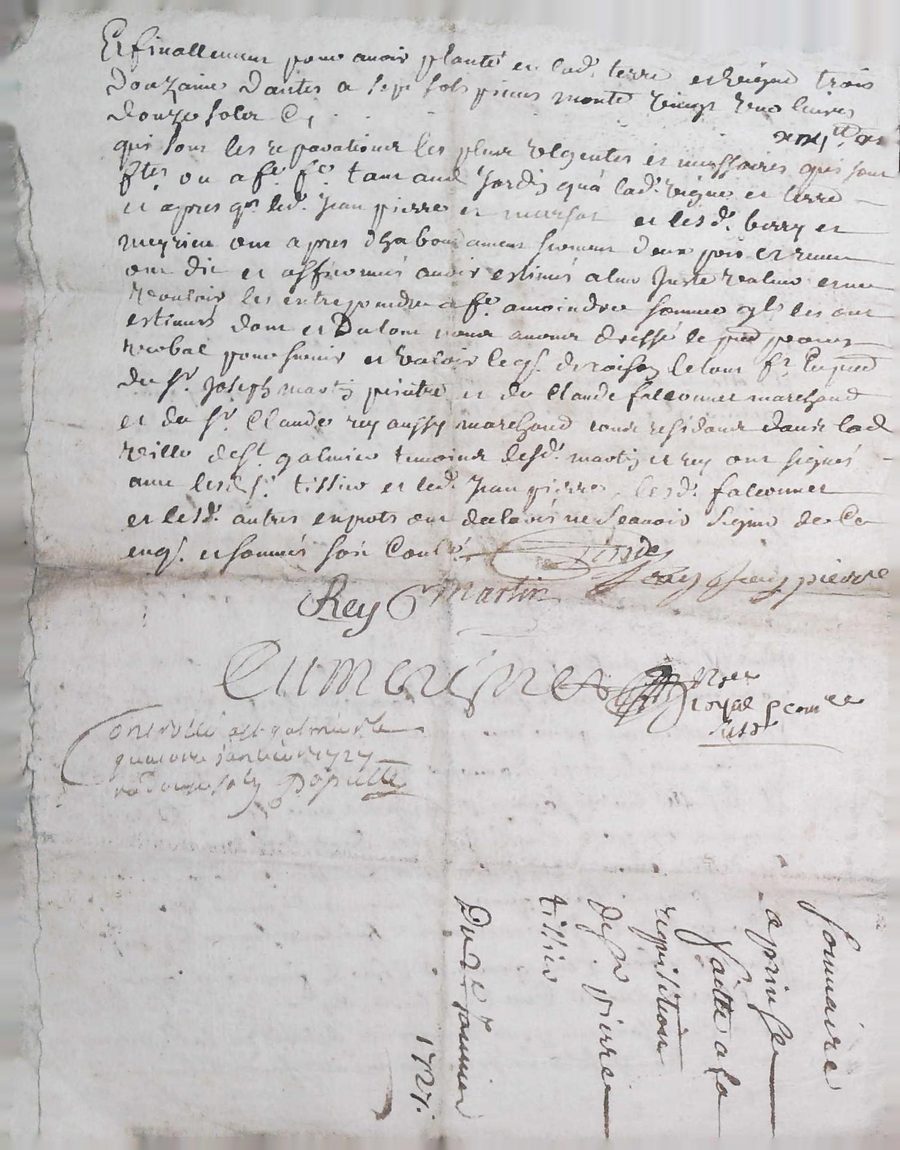 Et finallement pour avoir planté en lad. terre et vigne trois
douzaine dantes a sept sols pieces monte vingt une livres
douze solz Cy
qui sont les reparations les plus urgentes et necessaires qui sont
ftes ou a fe. fe. tant aud. Jardin qua lad. vigne et terre
et apres q. led. Jean pierre et marsal et lesd. berry et
meyrieu ont apres dhabondament serment deux pris et receu
ont dit et affirmés avoir estimés a leur juste valeur et ne
vouloir les entreprendre a fe. a moindre somme ql. les ont
estimés dont et du tout nous avons dressé le pnt proces
verbal pour servir et valoir leq. de raison le tout ft. En pnce
du Sr. Joseph martin peintre et du Claude falconnet marchand
et du Sr. Claude rey aussy marchand tous residant dans lad
ville de St. galmier temoins lesd. martin et rey ont signés
avec led. Sr. tissier et led. Jean pierre, lesd. falconnet
et lesd. autres experts ont declarés ne scavoir signer de ce
enq. et sommés soit Conllé.
Jean pierre
Rey Martin
No.re
royal
Controllé a St galmier le
quatorze janvier 1727
solz
Sommaire
aprinse
faitte a la
requisition
de Sr pierre
tissier
Du janvier
1727.